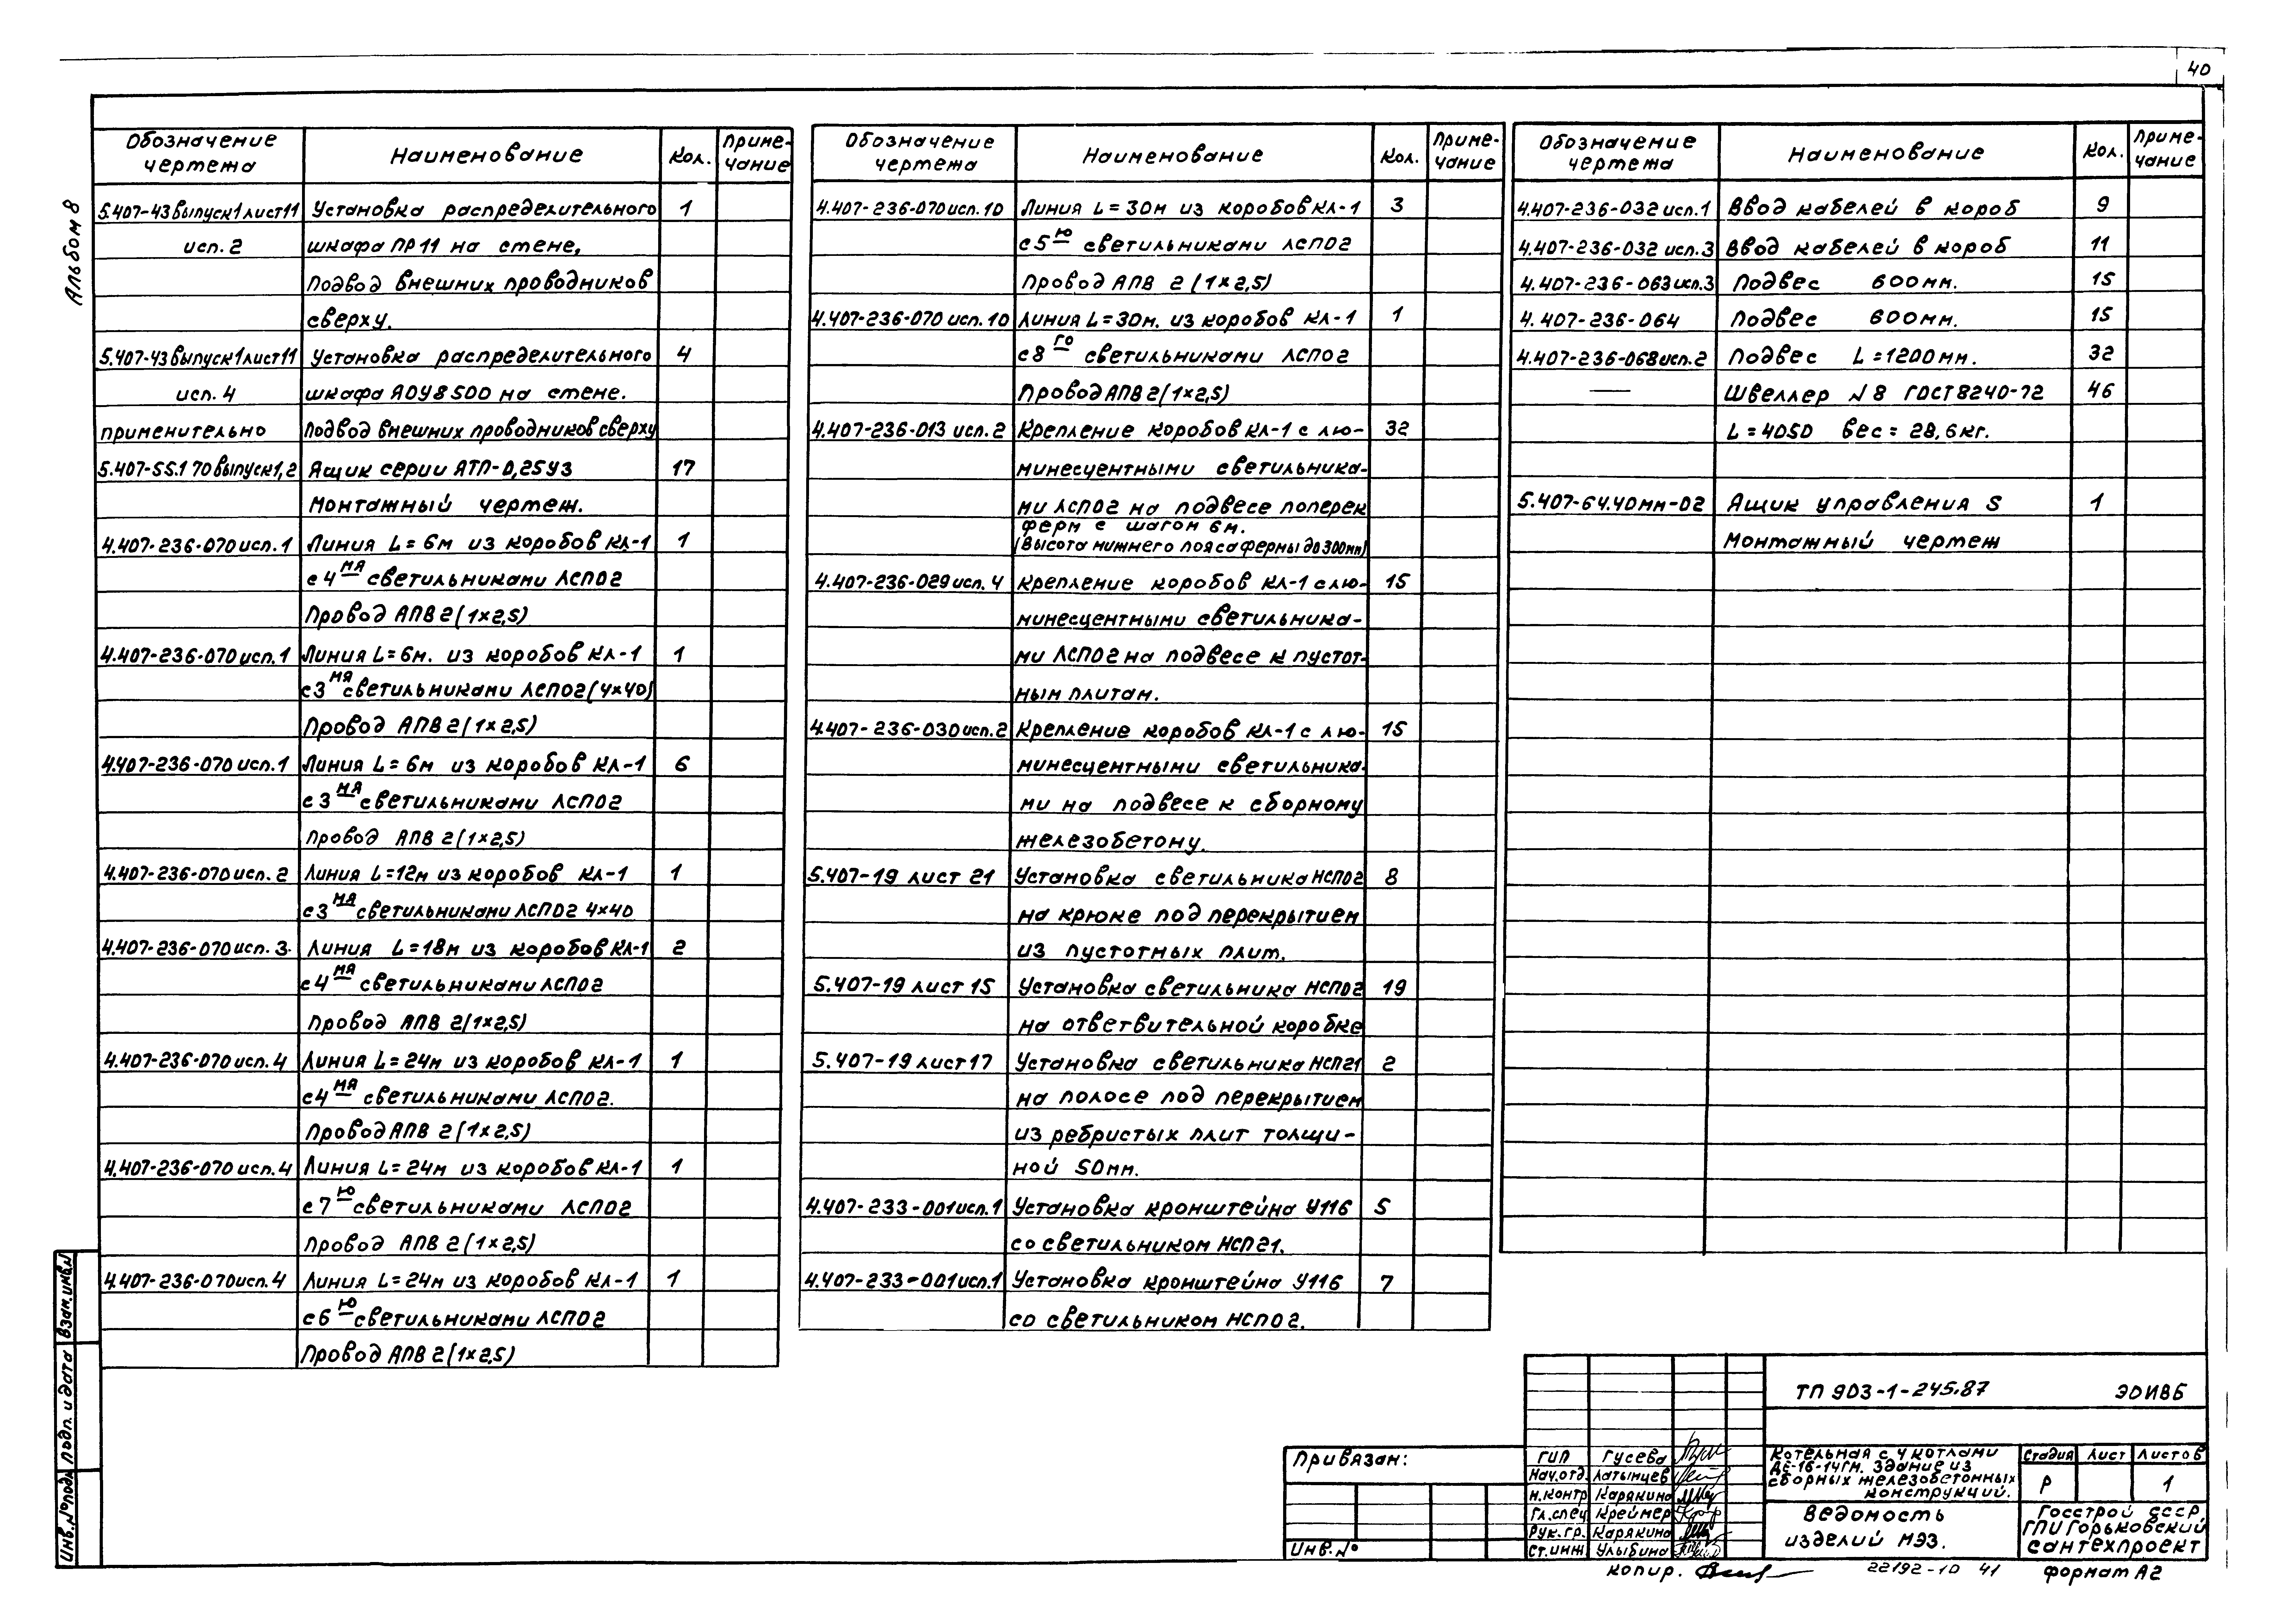 40
Альбом 8
Обозначение чертежа Наименование Кол. Приме-чание
5.407-43 выпуск 1 лист 11 Установка распределительного 1
исп. 2 шкафа ПР11 на стене,
Подвод внешних проводников
сверху.
5.407-43 выпуск 1 лист 11 Установка распределительного 4
исп. 4 шкафа ЯОУ8500 на стене.
применительно Подвод внешних проводников сверху
5.407-55.170 выпуск 1,2 Ящик серии ЯТП-0,25У3 17
Монтажный чертеж.
4.407-236-070 исп. 1 Линия L=6м из коробов КЛ-1 1
с 4мя светильниками ЛСП02
Провод АПВ 2(1×2,5)
4.407-236-070 исп. 1 Линия L=6м. из коробов КЛ-1 1
с 3мя светильниками ЛСП02(4×40)
Провод АПВ 2(1×2,5)
4.407-236-070 исп. 1 Линия L=6м из коробов КЛ-1 6
с 3мя светильниками ЛСП02
Провод АПВ 2(1×2,5)
4.407-236-070 исп. 2 Линия L=12м из коробов КЛ-1 1
с 3мя светильниками ЛСП02 4×40
4.407-236-070 исп. 3. Линия L=18м из коробов КЛ-1 2
с 4мя светильниками ЛСП02
Провод АПВ 2(1×2,5)
4.407-236-070 исп. 4 Линия L=24м из коробов КЛ-1 1
с 4мя светильниками ЛСП02.
Провод АПВ 2(1×2,5)
4.407-236-070 исп. 4 Линия L=24м из коробов КЛ-1 1
с 7ю светильниками ЛСП02
Провод АПВ 2(1×2,5)
4.407-236-070 исп. 4 Линия L=24м из коробов КЛ-1 1
с 6ю светильниками ЛСП02
Провод АПВ 2(1×2,5)
Обозначение чертежа Наименование Кол. Приме-чание
4.407-236-070 исп. 10 Линия L=30м из коробов КЛ-1 3
с 5ю светильниками ЛСП02
Провод АПВ 2(1×2,5)
4.407-236-070 исп. 10 Линия L=30м. из коробов КЛ-1 1
с 8го светильниками ЛСП02
Провод АПВ 2(1×2,5)
4.407-236-013 исп. 2 Крепление коробов КЛ-1 с лю- 32
минесцентными светильника-
ми ЛСП02 на подвесе поперек
ферм с шагом 6м.
(Высота нижнего пояса фермы до 300мм)
4.407-236-029 исп. 4 Крепление коробов КЛ-1 с лю- 15
минесцентными светильника-
ми ЛСП02 на подвесе к пустот-
ным плитам.
4.407-236-030 исп. 2 Крепление коробов КЛ-1 с лю- 15
минесцентными светильника-
ми на подвесе к сборному
железобетону.
5.407-19 лист 21 Установка светильника НСП02 8
на крюке под перекрытием
из пустотных плит.
5.407-19 лист 15 Установка светильника НСП02 19
на ответвительной коробке
5.407-19 лист 17 Установка светильника НСП21 2
на полосе под перекрытием
из ребристых плит толщи-
ной 50мм.
4.407-233-001 исп. 1 Установка кронштейна У116 5
со светильником НСП21.
4.407-233-001 исп. 1 Установка кронштейна У116 7
со светильником НСП02.
Обозначение чертежа Наименование Кол. Приме-чание
4.407-236-032 исп. 1 Ввод кабелей в короб 9
4.407-236-032 исп. 3 Ввод кабелей в короб 11
4.407-236-063 исп. 3 Подвес 600мм. 15
4.407-236-064 Подвес 600мм. 15
4.407-236-068 исп. 2 Подвес L=1200мм. 32
— Швеллер N8 ГОСТ 8240-72 46
L=4050 вес=28,6кг.
5.407-64.40мм-02 Ящик управления S 1
Монтажный чертеж
Взам. инв.N
Подп. и дата
Инв.№ подл
ТП 903-1-245.87 ЭОИВБ
Привязан:
Инв.№
ГИП Гусева
Нач.отд. Латынцев
Н.контр Карякина
Гл.спец Креймер
Рук.гр. Карякина
Ст.инж Улыбина
Котельная с 4 котлами
ДЕ-16-14ГМ. Здание из
сборных железобетонных
конструкций.
Стадия Лист Листов
Р 1
Ведомость
изделий МЭЗ.
Госстрой СССР
ГПИ Горьковский
Сантехпроект
Копир.
22192-10 41
формат А2